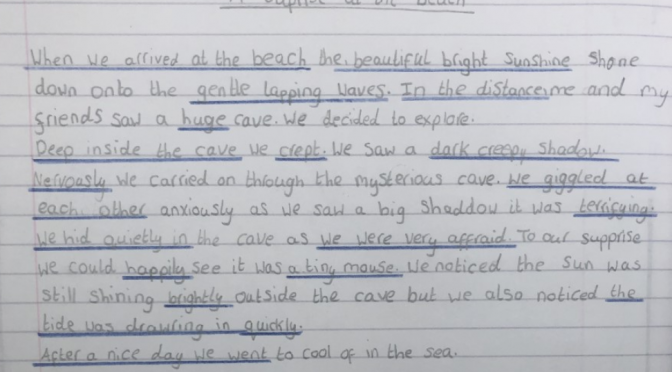 When we arrived at the beach the beautiful bright sunshine shone
down onto the gentle lapping waves. In the distance me and my
friends saw a huge cave. We decided to explore.
Deep inside the cave we crept. We saw a dark creepy shadow.
Nervously we carried on through the mysterious cave. We giggled at
each other anxiously as we saw a big shaddow it was terrifying.
We hid quietly in the cave as we were very affraid. To our supprise
we could happily see it was a tiny mouse. We noticed the sun was
still shining brightly outside the cave but we also noticed the
tide was drawing in quickly.
After a nice day we went to cool of in the sea.